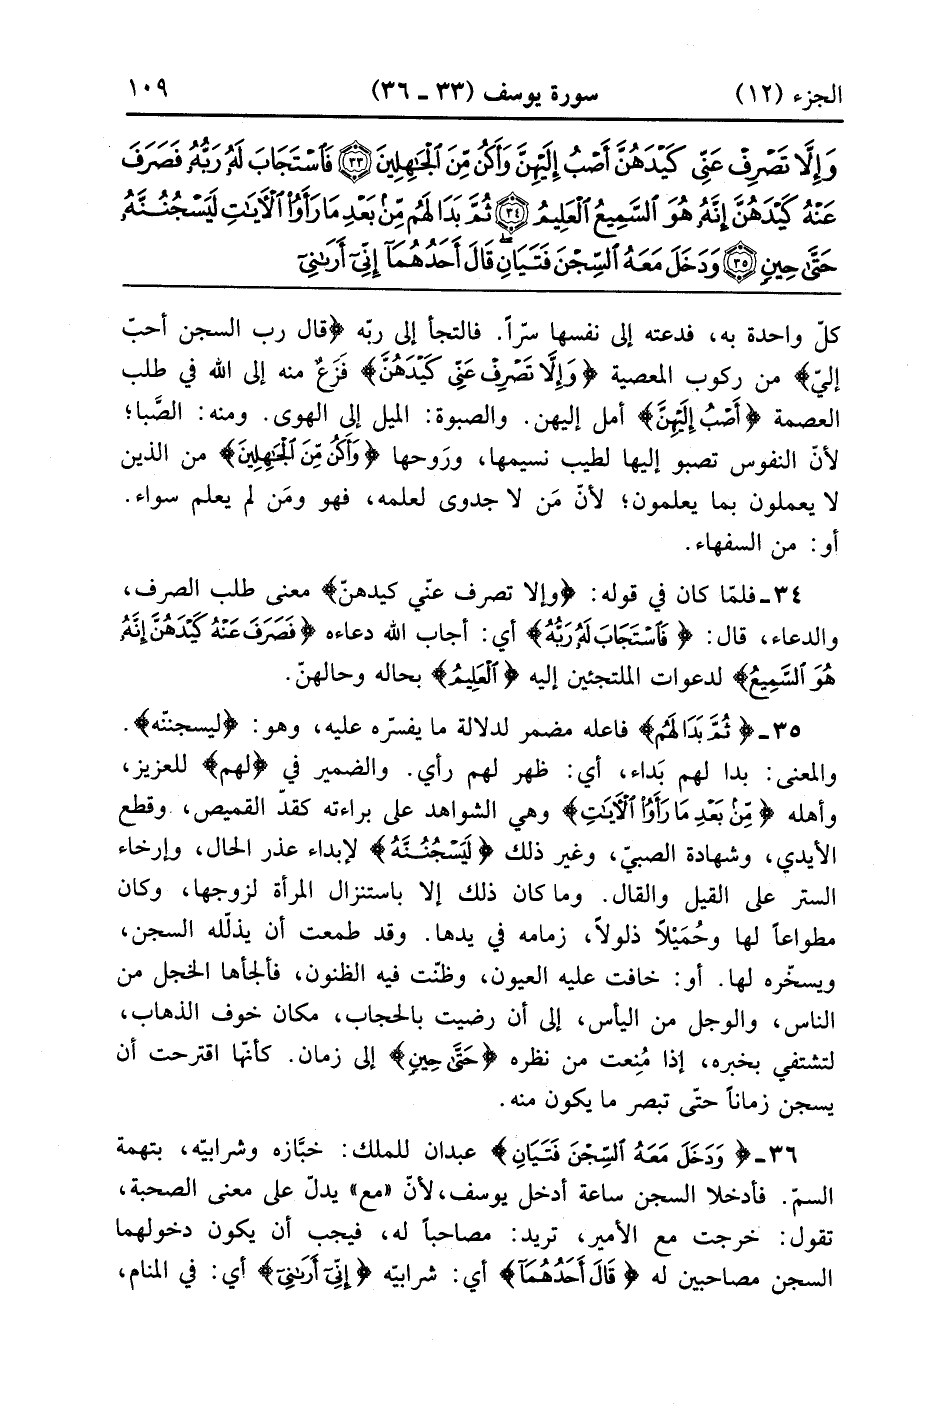 الجزء (١٢) سورة يوسف (٣٣ - ٣٦) ١٠٩
وَإِلَّا تَصْرِفْ عَنِّي كَيْدَهُنَّ أَصْبُ إِلَيْهِنَّ وَأَكُن مِّنَ ٱلْجَٰهِلِينَ ﴿٣٣﴾ فَٱسْتَجَابَ لَهُۥ رَبُّهُۥ فَصَرَفَ
عَنْهُ كَيْدَهُنَّ إِنَّهُۥ هُوَ ٱلسَّمِيعُ ٱلْعَلِيمُ ﴿٣٤﴾ ثُمَّ بَدَا لَهُم مِّنۢ بَعْدِ مَا رَأَوُاْ ٱلْأٓيَٰتِ لَيَسْجُنُنَّهُۥ
حَتَّىٰ حِينٍ ﴿٣٥﴾ وَدَخَلَ مَعَهُ ٱلسِّجْنَ فَتَيَانِ ۖ قَالَ أَحَدُهُمَآ إِنِّيٓ أَرَىٰنِيٓ
كلّ واحدة به، فدعته إلى نفسها سرّاً. فالتجأ إلى ربّه ﴿قال رب السجن أحبّ
إليّ﴾ من ركوب المعصية ﴿وَإِلَّا تَصْرِفْ عَنِّي كَيْدَهُنَّ﴾ فَزَعٌ منه إلى الله في طلب
العصمة ﴿أَصْبُ إِلَيْهِنَّ﴾ أمل إليهن. والصبوة: الميل إلى الهوى. ومنه: الصَّبا؛
لأنّ النفوس تصبو إليها لطيب نسيمها، ورَوحها ﴿وَأَكُن مِّنَ ٱلْجَٰهِلِينَ﴾ من الذين
لا يعملون بما يعلمون؛ لأنّ مَن لا جدوى لعلمه، فهو ومَن لم يعلم سواء.
أو: من السفهاء.
٣٤ـ فلمّا كان في قوله: ﴿وإلا تصرف عنّي كيدهنّ﴾ معنى طلب الصرف،
والدعاء، قال: ﴿فَٱسْتَجَابَ لَهُۥ رَبُّهُۥ﴾ أي: أجاب الله دعاءه ﴿فَصَرَفَ عَنْهُ كَيْدَهُنَّ إِنَّهُۥ
هُوَ ٱلسَّمِيعُ﴾ لدعوات الملتجئين إليه ﴿ٱلْعَلِيمُ﴾ بحاله وحالهنّ.
٣٥ـ ﴿ثُمَّ بَدَا لَهُم﴾ فاعله مضمر لدلالة ما يفسّره عليه، وهو: ﴿ليسجننّه﴾.
والمعنى: بدا لهم بَداء، أي: ظهر لهم رأي. والضمير في ﴿لهم﴾ للعزيز،
وأهله ﴿مِّنۢ بَعْدِ مَا رَأَوُاْ ٱلْأٓيَٰتِ﴾ وهي الشواهد على براءته كقدّ القميص، وقطع
الأيدي، وشهادة الصبيّ، وغير ذلك ﴿لَيَسْجُنُنَّهُۥ﴾ لإبداء عذر الحال، وإرخاء
الستر على القيل والقال. وما كان ذلك إلا باستنزال المرأة لزوجها، وكان
مطواعاً لها وحُمَيْلاً ذلولاً، زمامه في يدها. وقد طمعت أن يذلّله السجن،
ويسخّره لها. أو: خافت عليه العيون، وظنّت فيه الظنون، فألجأها الخجل من
الناس، والوجل من اليأس، إلى أن رضيت بالحجاب، مكان خوف الذهاب،
لتشتفي بخبره، إذا مُنعت من نظره ﴿حَتَّىٰ حِينٍ﴾ إلى زمان. كأنّها اقترحت أن
يسجن زماناً حتّى تبصر ما يكون منه.
٣٦ـ ﴿وَدَخَلَ مَعَهُ ٱلسِّجْنَ فَتَيَانِ﴾ عبدان للملك: خبَّازه وشرابيّه، بتهمة
السمّ. فأدخلا السجن ساعة أدخل يوسف، لأنّ «مع» يدلّ على معنى الصحبة،
تقول: خرجت مع الأمير، تريد: مصاحباً له، فيجب أن يكون دخولهما
السجن مصاحبين له ﴿قَالَ أَحَدُهُمَآ﴾ أي: شرابيّه ﴿إِنِّيٓ أَرَىٰنِيٓ﴾ أي: في المنام،